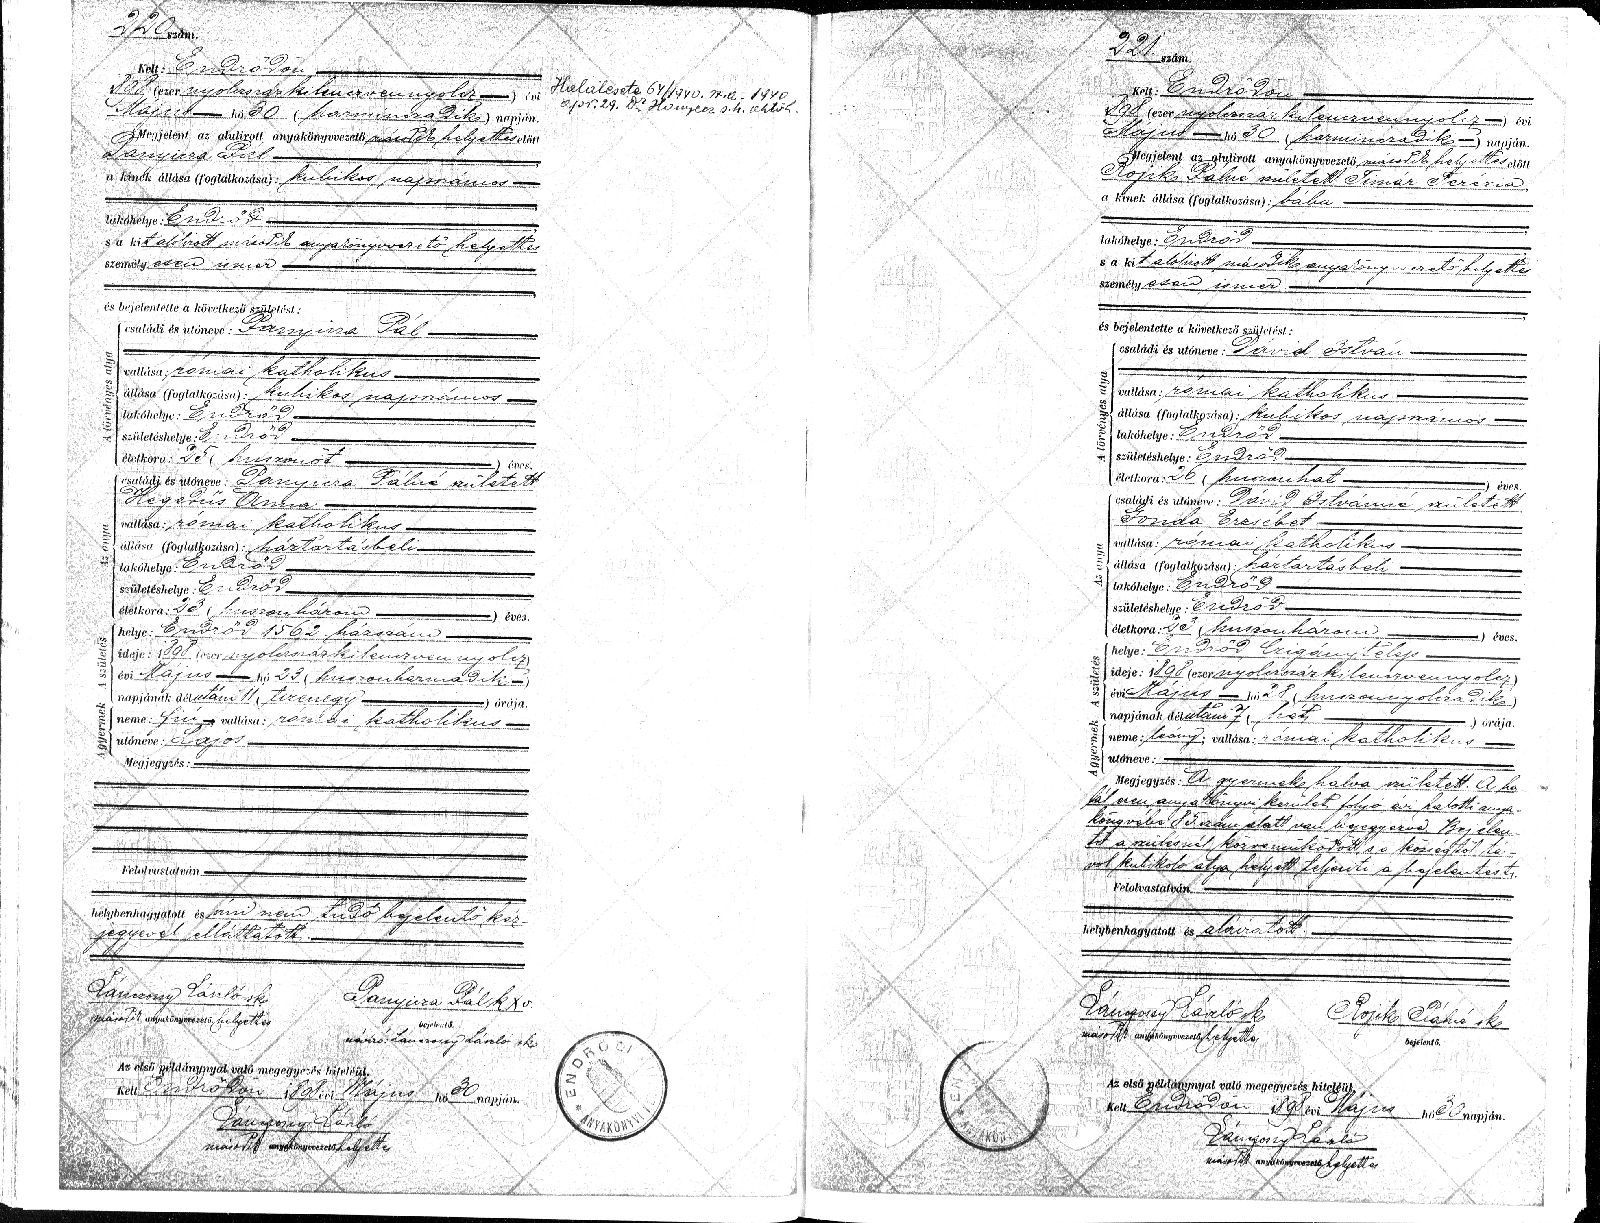 220 szám.
Kelt: Endrődön
1898 (ezer nyolcszázkilencvennyolcz) évi
Május hó 30 (harmincadik) napján.
Megjelent az alulirott anyakönyvvezető második helyettes előtt
Panyicza Pál
a kinek állása (foglalkozása): kubikos napszámos
lakóhelye: Endrőd
s a kit alólirott második anyakönyvvezető helyettes
személyesen ismer
és bejelentette a következő születést:
A törvényes atya
családi és utóneve: Panyicza Pál
vallása: római katholikus
állása (foglalkozása): kubikos napszámos
lakóhelye: Endrőd
születéshelye: Endrőd
életkora: 25 (huszonöt) éves.
Az anya
családi és utóneve: Panyicza Pálné született
Hegedűs Anna
vallása: római katholikus
állása (foglalkozása): háztartásbeli
lakóhelye: Endrőd
születéshelye: Endrőd
életkora: 23 (huszonhárom) éves.
A születés
helye: Endrőd 1562 házszám
ideje: 1898 (ezer nyolcszázkilencvennyolcz)
évi Május hó 23 (huszonharmadik)
napjának délutáni 11 (tizenegy) órája.
A gyermek
neme: fiu vallása: római katholikus
utóneve: Lajos
Megjegyzés:
Felolvastatván
helybenhagyatott és irni nem tudó bejelentő kéz-
jegyével elláttatott.
Lánczosy László sk
második anyakönyvvezető helyettes
Panyicza Pál k x v.
bejelentő.
névíró: Lánczosy László sk
Az első példánynyal való megegyezés hiteléül.
Kelt Endrődön 1898 évi Május hó 30 napján.
Lánczosy László
második anyakönyvvezető helyettes
Halálesete 64/1940.
1940
ápr. 29. Dr.
ENDRŐDI
ANYAKÖNYVI
221 szám.
Kelt: Endrődön
1898 (ezer nyolcszázkilencvennyolcz) évi
Május hó 30 (harmincadik) napján.
Megjelent az alulirott anyakönyvvezető második helyettes előtt
Rojik Pálné született Timár Terézia
a kinek állása (foglalkozása): bába
lakóhelye: Endrőd
s a kit alólirott második anyakönyvvezető helyettes
személyesen ismer
és bejelentette a következő születést:
A törvényes atya
családi és utóneve: Dávid István
vallása: római katholikus
állása (foglalkozása): kubikos napszámos
lakóhelye: Endrőd
születéshelye: Endrőd
életkora: 26 (huszonhat) éves.
Az anya
családi és utóneve: Dávid Istvánné született
Gonda Erzsébet
vallása: római katholikus
állása (foglalkozása): háztartásbeli
lakóhelye: Endrőd
születéshelye: Endrőd
életkora: 23 (huszonhárom) éves.
A születés
helye: Endrőd Czigánytelep
ideje: 1898 (ezer nyolcszázkilencvennyolcz)
évi Május hó 28 (huszonnyolczadik)
napjának délutáni 7 (hét) órája.
A gyermek
neme: leány; vallása: római katholikus
utóneve:
Megjegyzés: A gyermek halva született. A ha-
lál ezen anyakönyvi kerület folyó évi halotti anya-
könyvébe 85 szám alatt van bejegyezve. Bejelen-
tő a szülésnél közreműködött s a községtől tá-
vol kubikoló atya helyett teljesiti a bejelentést.
Felolvastatván
helybenhagyatott és aláiratott.
Lánczosy László sk
második anyakönyvvezető helyettes
Rojik Pálné sk
bejelentő.
Az első példánynyal való megegyezés hiteléül.
Kelt Endrődön 1898 évi Május hó 30 napján.
Lánczosy László
második anyakönyvvezető helyettes
EN
ANYAKÖN